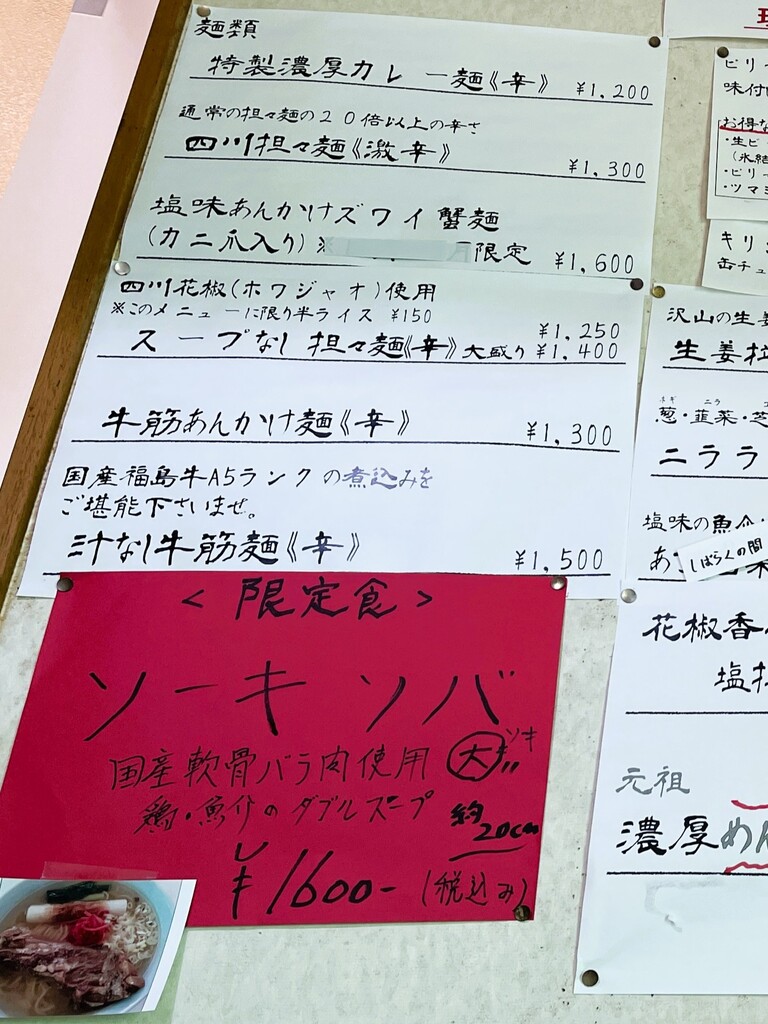 麺類
特製濃厚カレー麺《辛》 ¥1,200
通常の担々麺の20倍以上の辛さ
四川担々麺《激辛》 ¥1,300
塩味あんかけズワイ蟹麺
(カニ爪入り)※ 限定 ¥1,600
四川花椒(ホワジャオ)使用
※このメニューに限り半ライス ¥150
¥1,250
スープなし担々麺《辛》大盛り ¥1,400
牛筋あんかけ麺《辛》 ¥1,300
国産福島牛A5ランクの煮込みを
ご堪能下さいませ。
汁なし牛筋麺《辛》 ¥1,500
<限定食>
ソーキソバ
国産軟骨バラ肉使用 大
鶏・魚介のダブルスープ 約20cm
¥1600- (税込み)
味付
お得な
・生ビ
(氷結
・ビリ
・ツマミ
キリ
缶チュ
沢山の生姜
生姜拉
ネギ ニラ
葱・韮菜・芝
ニララ
塩味の魚介
あ
しばらくの間
花椒香
塩担
元祖
濃厚めん